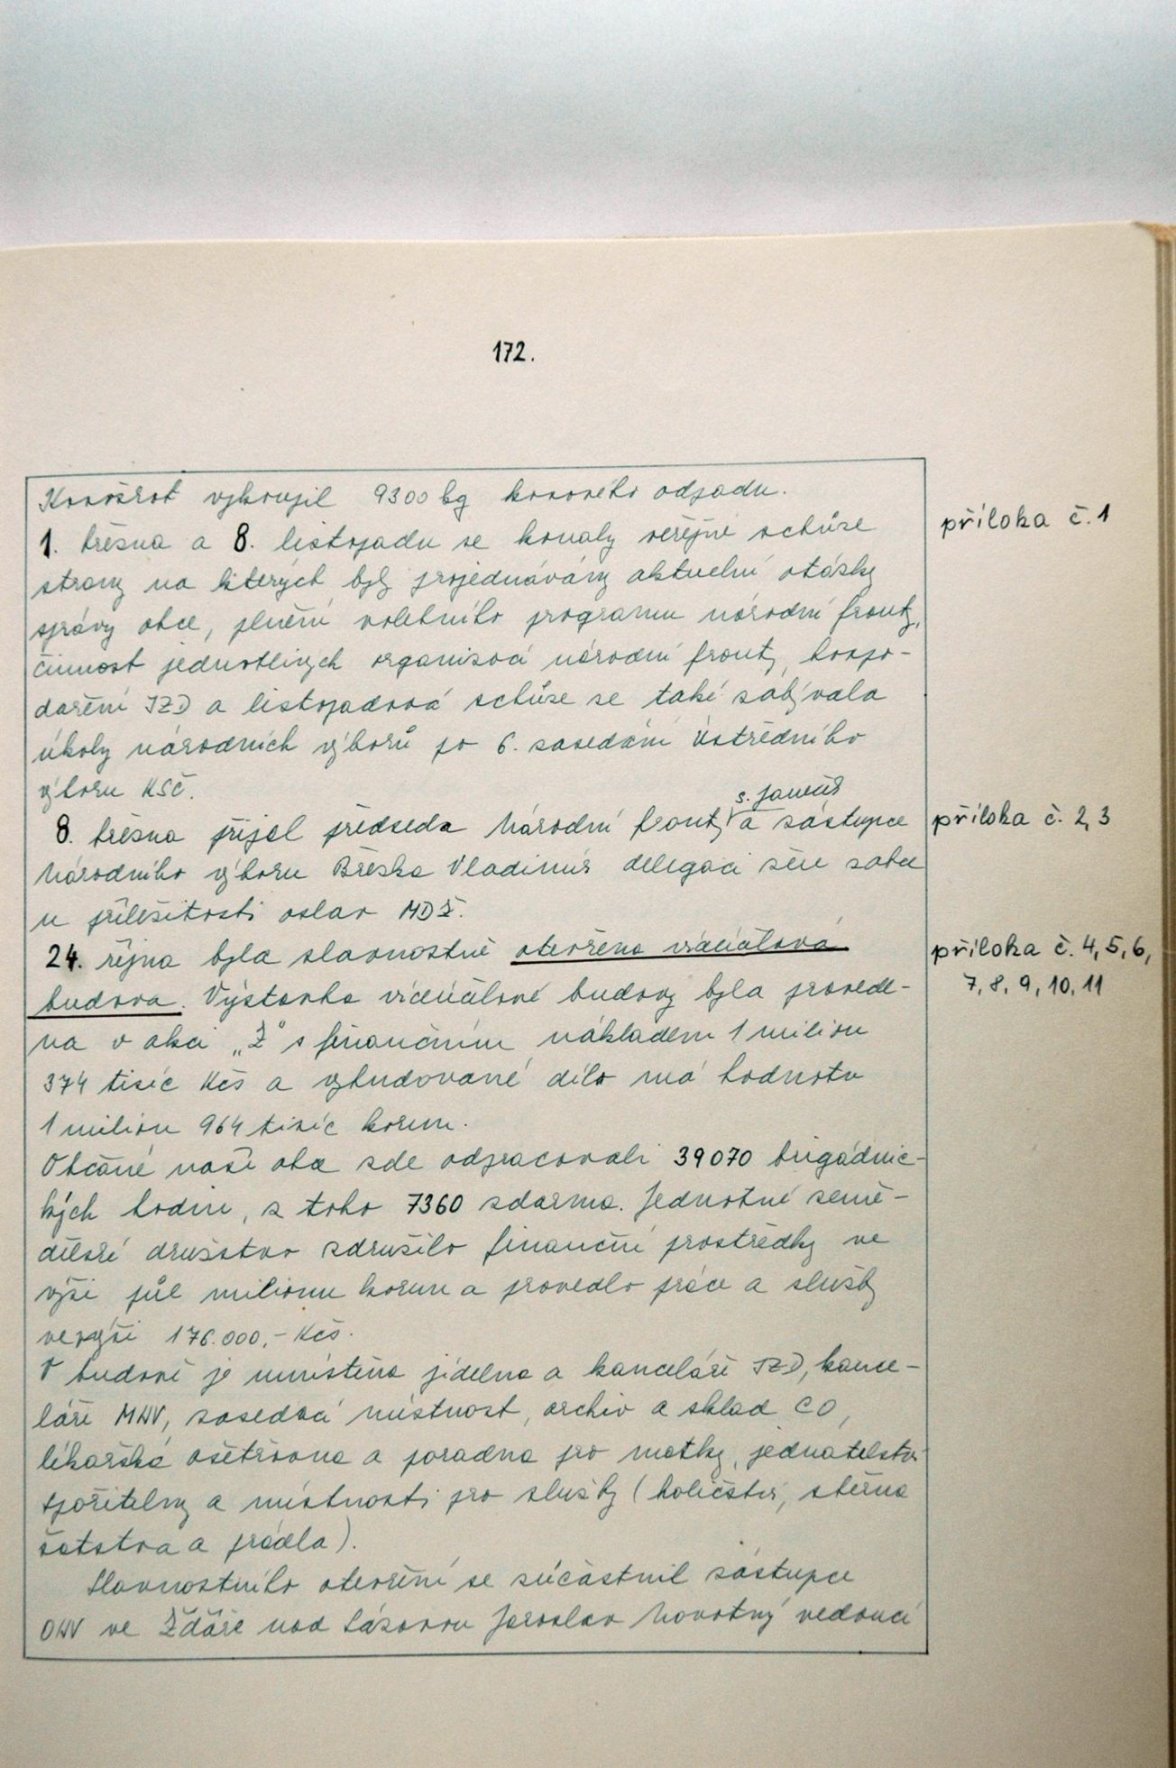 172.
Kovošrot vykoupil 9300 kg kovového odpadu.
příloha č. 1
1. března a 8. listopadu se konaly veřejné schůze
strany na kterých byly projednávány aktuelní otázky
správy obce, plnění volebního programu národní fronty,
činnost jednotlivých organisací národní fronty, hospo-
daření JZD a listopadová schůze se také zabývala
úkoly národních výborů po 6. zasedání ústředního
výboru KSČ.
s. Janeček
8. března přijal předseda Národní fronty a zástupce
příloha č. 2, 3
Národního výboru Břeska Vladimír delegaci žen z obce
u příležitosti oslav MDŽ.
24. října byla slavnostně otevřena víceúčelová
příloha č. 4, 5, 6,
7, 8, 9, 10, 11
budova. Výstavba víceúčelové budovy byla provede-
na v akci „Z" s finančním nákladem 1 milion
374 tisíc Kčs a vybudované dílo má hodnotu
1 milion 964 tisíc korun.
Občané naší obce zde odpracovali 39070 brigádnic-
kých hodin, z toho 7360 zdarma. Jednotné země-
dělské družstvo sdružilo finanční prostředky ve
výši půl milionu korun a provedlo práce a služby
ve výši 176.000,- Kčs.
V budově je umístěna jídelna a kanceláře JZD, kance-
láře MNV, zasedací místnost, archiv a sklad CO,
lékařská ošetřovna a poradna pro matky, jednatelství
spořitelny a místnosti pro služby (holičství, sběrna
šatstva a prádla).
Slavnostního otevření se zúčastnil zástupce
ONV ve Žďáře nad Sázavou Jaroslav Novotný vedoucí